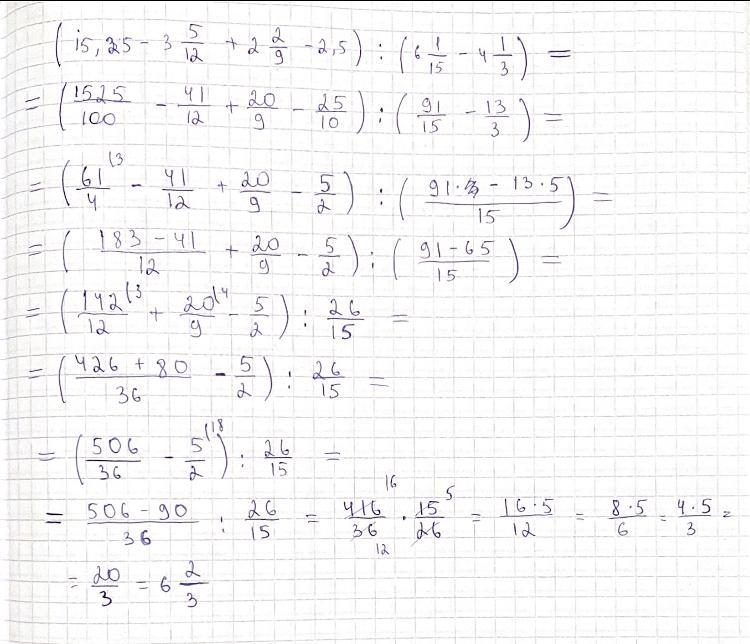 (15,25 - 3 5/12 + 2 2/9 - 2,5) : (6 1/15 - 4 1/3) =
= (1525/100 - 41/12 + 20/9 - 25/10) : (91/15 - 13/3) =
= (61/4 (3 - 41/12 + 20/9 - 5/2) : (91·3 - 13·5/15) =
= (183 - 41/12 + 20/9 - 5/2) : (91 - 65/15) =
= (142/12 (3 + 20/9 (4 - 5/2) : 26/15 =
= (426 + 80/36 - 5/2) : 26/15 =
= (506/36 - 5/2 (18) : 26/15 =
= 506 - 90/36 : 26/15 = 416/36 16 12 · 15/26 5 = 16·5/12 = 8·5/6 = 4·5/3 =
= 20/3 = 6 2/3